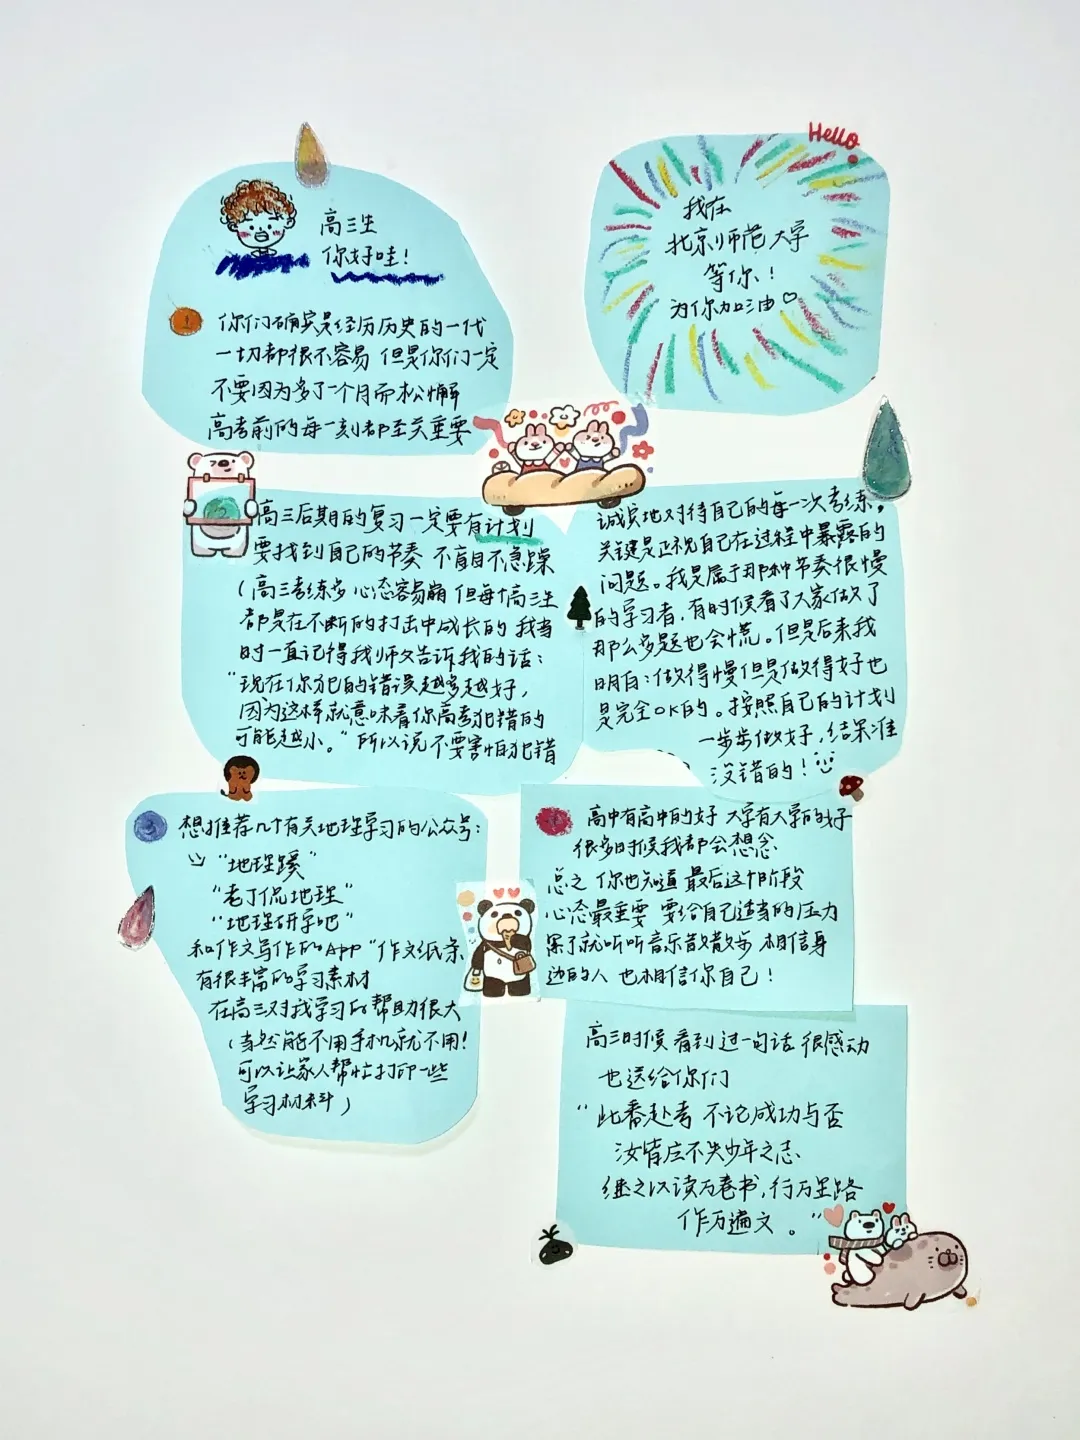 高三生
你好哇!
Hello
我在
北京师范大学
等你!
为你加油♡
1 你们确实是经历历史的一代
一切都很不容易 但是你们一定
不要因为多了一个月而松懈
高考前的每一刻都至关重要
2 高三后期的复习一定要有计划
要找到自己的节奏 不盲目不急躁
(高三考练多 心态容易崩 但每个高三生
都是在不断的打击中成长的 我当
时一直记得我师父告诉我的话:
"现在你犯的错误越多越好,
因为这样就意味着你高考犯错的
可能越小。"所以说不要害怕犯错
诚实地对待自己的每一次考练。
关键是正视自己在过程中暴露的
问题。我是属于那种节奏很慢
的学习者,有时候看了大家做了
那么多题也会慌。但是后来我
明白:做得慢但是做得好也
是完全OK的。按照自己的计划
一步步做好,结果准
没错的!
3 想推荐几个有关地理学习的公众号:
"地理蹊"
"老丁侃地理"
"地理研学吧"
和作文写作的App"作文纸条
有很丰富的学习素材
在高三对我学习的帮助很大
(当然能不用手机就不用!
可以让家人帮忙打印一些
学习材料)
4 高中有高中的好 大学有大学的好
很多时候我都会想念
总之 你也知道 最后这个阶段
心态最重要 要给自己适当的压力
累了就听听音乐散散步 相信身
边的人 也相信你自己!
高三时候看到过一句话 很感动
也送给你们
"此番赴考 不论成功与否
汝皆应不失少年之志
继之以读万卷书,行万里路
作万遍文。"